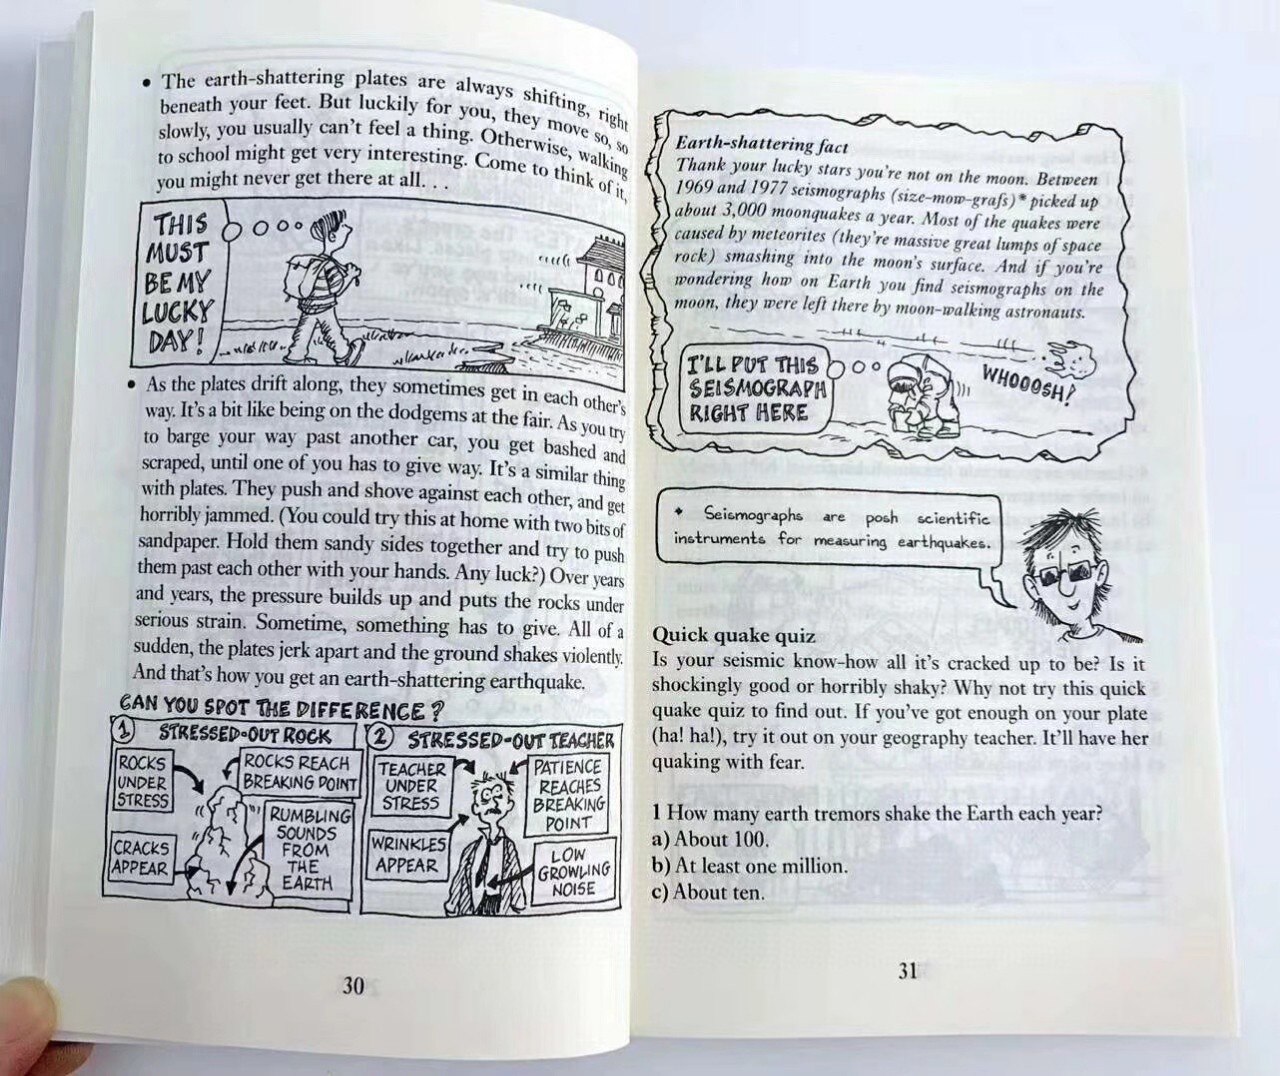 • The earth-shattering plates are always shifting, right
beneath your feet. But luckily for you, they move so, so
slowly, you usually can't feel a thing. Otherwise, walking
to school might get very interesting. Come to think of it,
you might never get there at all. . .
THIS
MUST
BE MY
LUCKY
DAY!
• As the plates drift along, they sometimes get in each other's
way. It's a bit like being on the dodgems at the fair. As you try
to barge your way past another car, you get bashed and
scraped, until one of you has to give way. It's a similar thing
with plates. They push and shove against each other, and get
horribly jammed. (You could try this at home with two bits of
sandpaper. Hold them sandy sides together and try to push
them past each other with your hands. Any luck?) Over years
and years, the pressure builds up and puts the rocks under
serious strain. Sometime, something has to give. All of a
sudden, the plates jerk apart and the ground shakes violently.
And that's how you get an earth-shattering earthquake.
CAN YOU SPOT THE DIFFERENCE?
1 STRESSED-OUT ROCK
ROCKS
UNDER
STRESS
ROCKS REACH
BREAKING POINT
CRACKS
APPEAR
RUMBLING
SOUNDS
FROM
THE
EARTH
2 STRESSED-OUT TEACHER
TEACHER
UNDER
STRESS
PATIENCE
REACHES
BREAKING
POINT
WRINKLES
APPEAR
LOW
GROWLING
NOISE
30
Earth-shattering fact
Thank your lucky stars you're not on the moon. Between
1969 and 1977 seismographs (size-mow-grafs)* picked up
about 3,000 moonquakes a year. Most of the quakes were
caused by meteorites (they're massive great lumps of space
rock) smashing into the moon's surface. And if you're
wondering how on Earth you find seismographs on the
moon, they were left there by moon-walking astronauts.
I'LL PUT THIS
SEISMOGRAPH
RIGHT HERE
WHOOOSH!
* Seismographs are posh scientific
instruments for measuring earthquakes.
Quick quake quiz
Is your seismic know-how all it's cracked up to be? Is it
shockingly good or horribly shaky? Why not try this quick
quake quiz to find out. If you've got enough on your plate
(ha! ha!), try it out on your geography teacher. It'll have her
quaking with fear.
1 How many earth tremors shake the Earth each year?
a) About 100.
b) At least one million.
c) About ten.
31